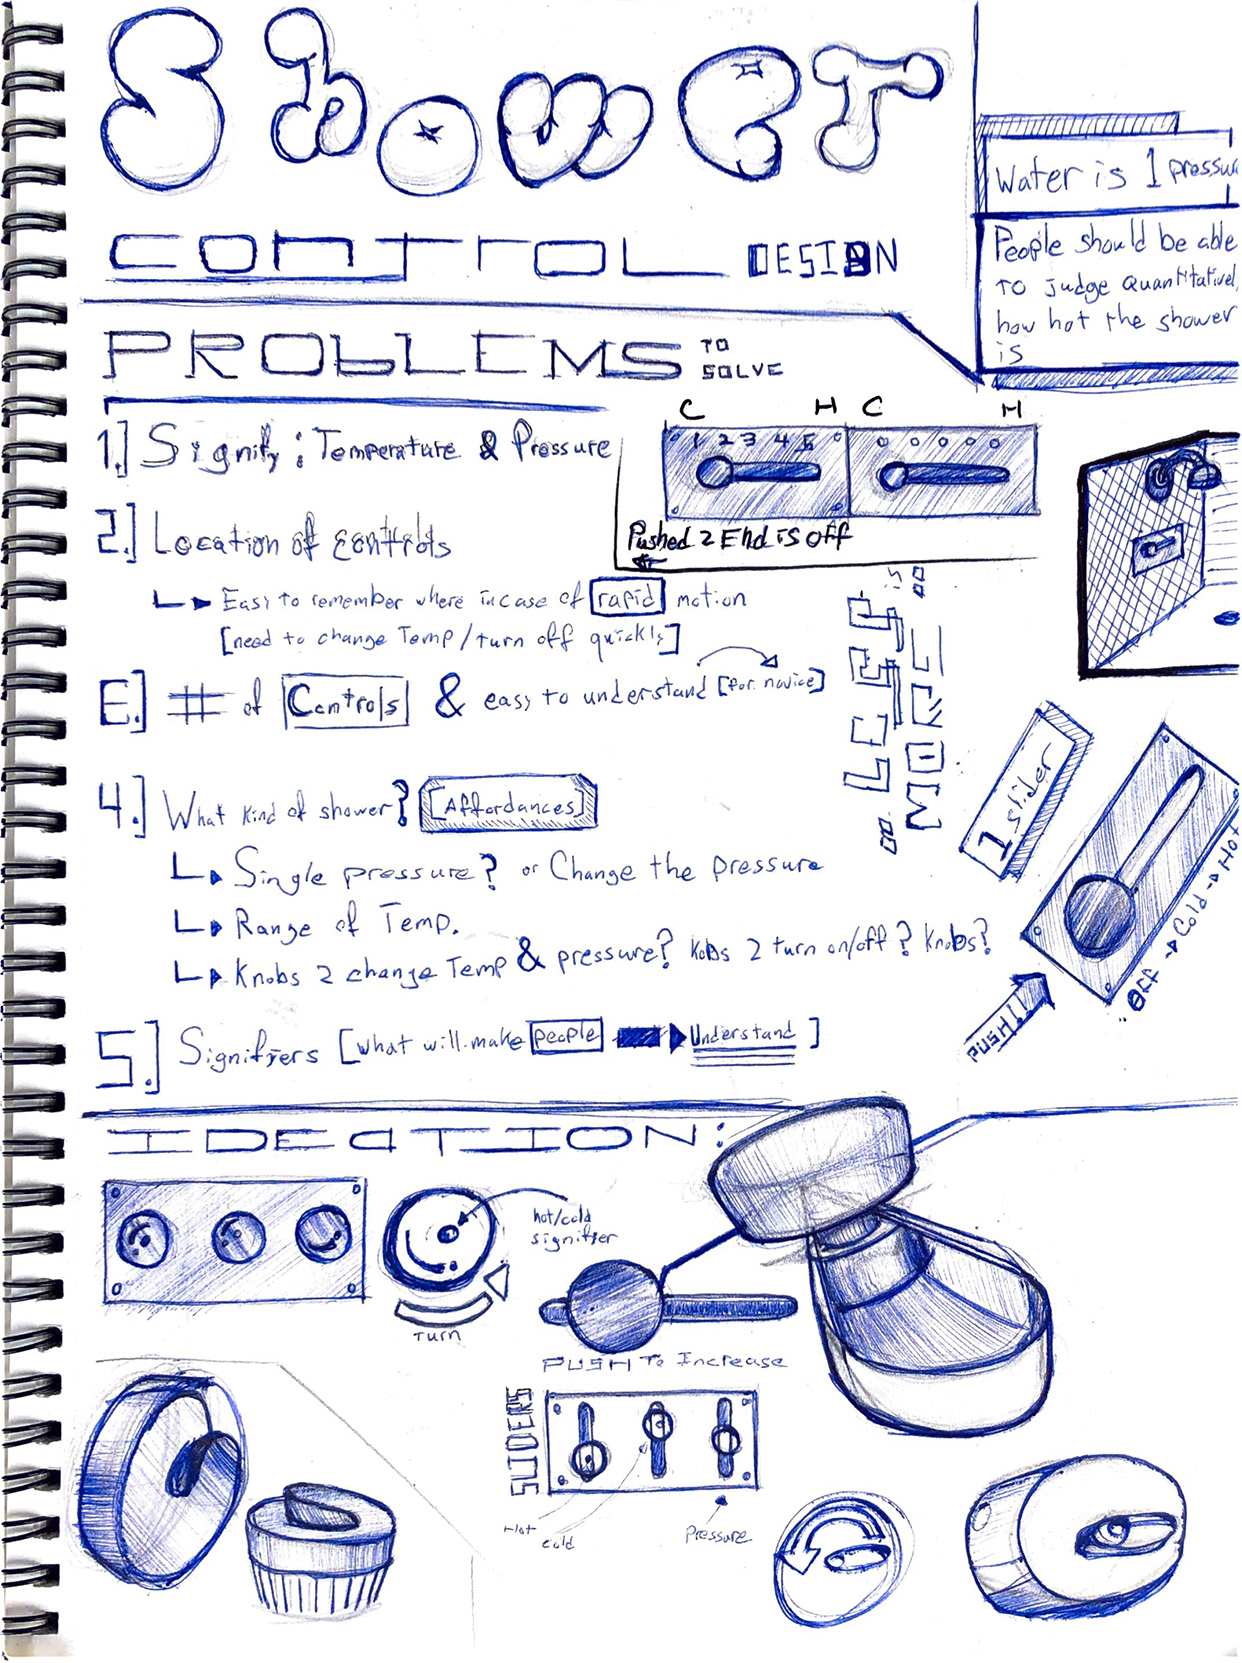 Shower
CONTROL DESIGN
Water is 1 pressu
People should be able
to judge Quantitativel
how hot the shower
is
PROBLEMS TO SOLVE
1.] Signify: Temperature & Pressure
C H C H
1 2 3 4 5
Pushed 2 End is off
2.] Location of controls
Easy to remember where incase of rapid motion
[need to change Temp/turn off quickly]
E.] # of Controls & easy to understand [for novice]
4.] What kind of shower? [Affordances]
Single pressure? or Change the pressure
Range of Temp.
Knobs 2 change Temp & pressure? Kobs 2 turn on/off? Knobs?
1 slider
OFF → Cold → Hot
PUSH!!
5.] Signifiers [what will make people Understand]
IDEATION:
hot/cold
signifier
TURN
PUSH To Increase
SLIDERS
Hot
cold
Pressure